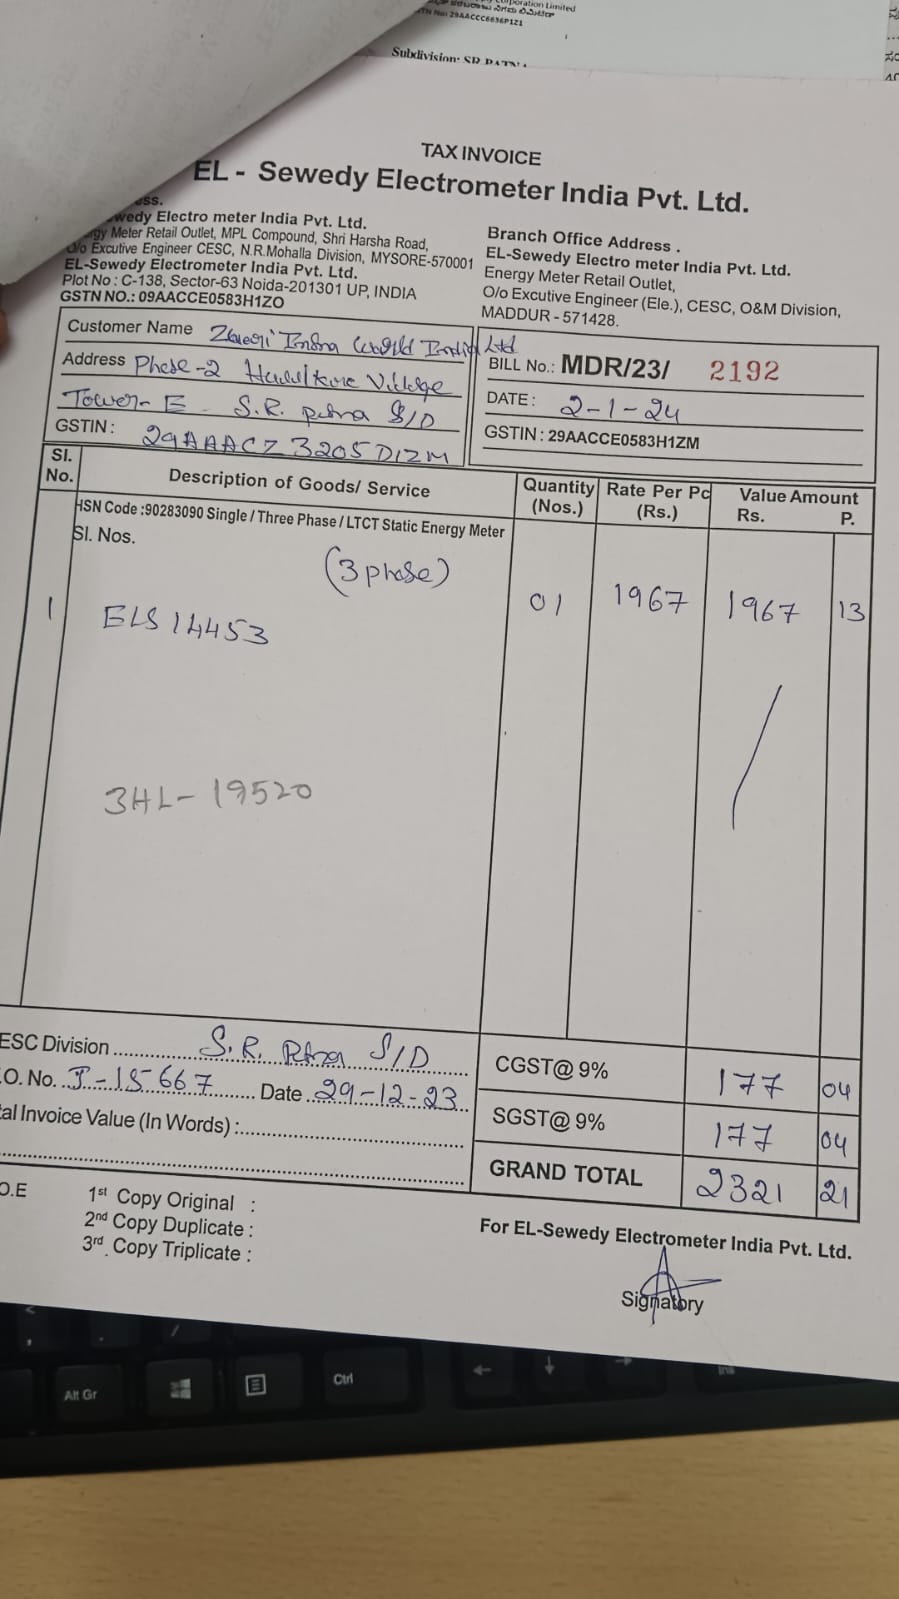 poration Limited
TN No: 29AACCC6636P1Z1
Subdivision: SR PATNA
TAX INVOICE
EL - Sewedy Electrometer India Pvt. Ltd.
ess.
wedy Electro meter India Pvt. Ltd.
gy Meter Retail Outlet, MPL Compound, Shri Harsha Road,
O/o Excutive Engineer CESC, N.R.Mohalla Division, MYSORE-570001
EL-Sewedy Electrometer India Pvt. Ltd.
Plot No : C-138, Sector-63 Noida-201301 UP, INDIA
GSTN NO.: 09AACCE0583H1ZO
Branch Office Address .
EL-Sewedy Electro meter India Pvt. Ltd.
Energy Meter Retail Outlet,
O/o Excutive Engineer (Ele.), CESC, O&M Division,
MADDUR - 571428.
Customer Name Zuari Infra World India Ltd
Address Phase-2 Village
Tower-E S.R. S/D
GSTIN : 29AAACZ3205D1ZM
BILL No.: MDR/23/ 2192
DATE : 2-1-24
GSTIN : 29AACCE0583H1ZM
Sl. No. Description of Goods/ Service Quantity (Nos.) Rate Per Pc (Rs.) Value Amount Rs. P.
HSN Code :90283090 Single / Three Phase / LTCT Static Energy Meter
Sl. Nos.
(3 phase)
1 ELS 14453 01 1967 1967 13
3HL-19520
ESC Division S.R. S/D
.O. No. I-15667 Date 29-12-23
tal Invoice Value (In Words) :
CGST@ 9% 177 04
SGST@ 9% 177 04
GRAND TOTAL 2321 21
O.E
1st Copy Original :
2nd Copy Duplicate :
3rd. Copy Triplicate :
For EL-Sewedy Electrometer India Pvt. Ltd.
Signatory
Alt Gr
Ctrl
Ins